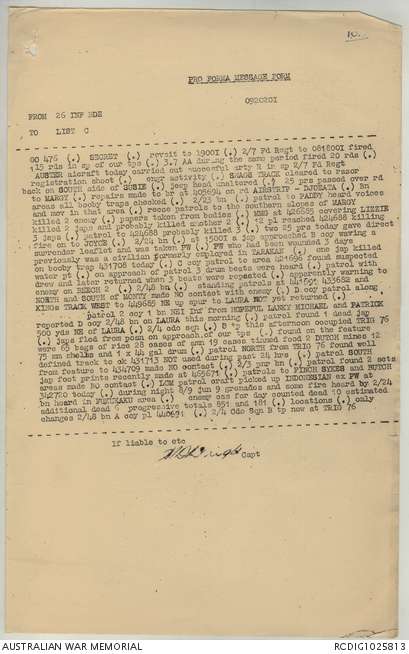 10.
PRO FORMA MESSAGE FORM
092020I
FROM 26 INF BDE
TO LIST C
GO 476 (.) SECRET (.) revsit to 1900I (.) 2/7 Fd Regt to 081800I fired
15 rds in sp of our tps (.) 3.7 AA during the same period fired 20 rds (.)
AUSTER aircraft today carried out successful arty R in sp 2/7 Fd Regt
registration shoot (.) engr activity (.) SNAGS TRACK cleared to razor
back on SOUTH side of SUSIE (.) jeep head unaltered (.) 25 prs passed over rd
to MARGY (.) repairs made to br at 405694 on rd AIRSTRIP - DJUEATA (.) Bn
areas all booby traps checked (.) 2/23 bn (.) patrol to PADDY heard voices
and mov in that area (.) recce patrols to the southern slopes of MARGY
killed 2 enemy (.) papers taken from bodies (.) MMG at 426685 covering LIZZIE
killed 2 japs and probably killed another 2 (.) 12 pl reached 424688 killing
3 japs (.) patrol 421688 probably killed 3 (.) two 25 prs today gave direct
fire on to JOYCE (.) 2/24 bn (.) at 1500I a jap approached B coy waving a
surrender leaflet and was taken PW (.) PW who had been wounded 3 days
previously was a civilian formerly employed in TARAKAN (.) one jap killed
on booby trap 431708 (.) C coy patrol to area 421695 found suspected
water pt (.) on approach of patrol 3 drum beats were heard (.) patrol with
drew and later returned when 3 beats were repeated (.) apparently warning to
enemy on BEECH 2 (.) 2/48 bn (.) standing patrols at 441691 433682 and
NORTH and SOUTH of MONTY made NO contact with enemy (.) D coy patrol along
KINGS TRACK WEST to 449685 NE up spur to LAURA NOT yet returned (.)
patrol 2 coy 1 bn NEI Inf from HOPEFUL LANKY MICHAEL and PATRICK
reported D coy 2/48 bn on LAURA this morning (.) patrol found 1 dead jap
500 yds NE of LAURA (.) 2/4 cdo sqn (.) B tp this afternoon occupied TRIG 76
(.) japs fled from posn on approach of our tps (.) found on the feature
were 65 bags of rice 28 cases of amn 19 cases tinned food 2 DUTCH mines 12
75 mm shells and 1 x 44 gal drum (.) patrol NORTH from TRIG 76 found well
defined track to ok 431713 NOT used during past 24 hrs (.) patrol SOUTH
from feature to 434709 made NO contact (.) 2/3 pnr bn (.) patrol found 2 sets
jap foot prints recently made at 465671 (.) patrols to FINCH SYKES and BUTCH
areas made NO contact (.) LCM patrol craft picked up INDONESIAN ex PW at
342720 today (.) during night 8/9 jun 9 grenades and some fire heard by 2/24
bn heard in FUKUKAKU area (.) enemy cas for day counted dead 10 estimated
additional dead 6 progressive totals 851 and 181 (.) locations (.) only
changes 2/48 bn A coy pl 440691 (.) 2/4 Cdo Sqn B tp now at TRIG 76
If liable to etc
Capt
AUSTRALIAN WAR MEMORIAL
RCDIG1025813